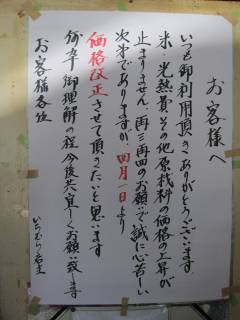 お客様へ
いつも御利用頂きありがとうございます
米、光熱費、その他原材料の価格の上昇が
止まりません、再三再四のお願いで誠に心苦しい
次第でありますが、四月一日より
価格改正させて頂きたいと思います
何卒御理解の程今後共宜しくお願い致します
お客様各位
いちむら店主